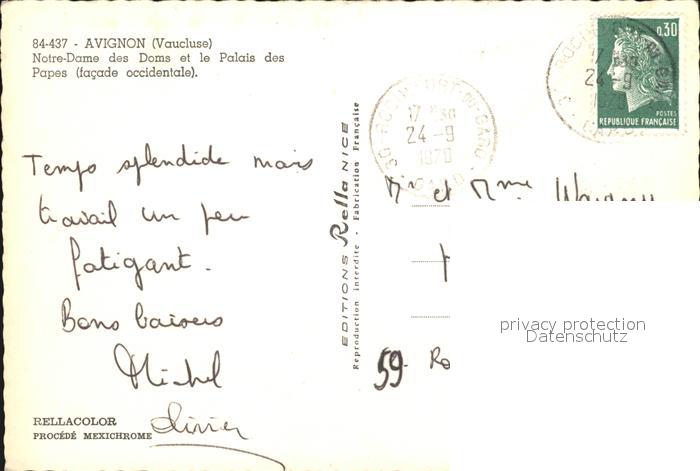 84-437 - AVIGNON (Vaucluse)
Notre-Dame des Doms et le Palais des
Papes (façade occidentale).
0,30
POSTES
REPUBLIQUE FRANÇAISE
17 H30
24 -9
1970
GARD
Temps splendide mais
travail un peu
fatigant.
Bons baisers
Michel
Olivier
EDITIONS Rella NICE
Reproduction interdite - Fabrication Française
Mr et Mme
59. Ro
privacy protection
Datenschutz
RELLACOLOR
PROCÉDÉ MEXICHROME